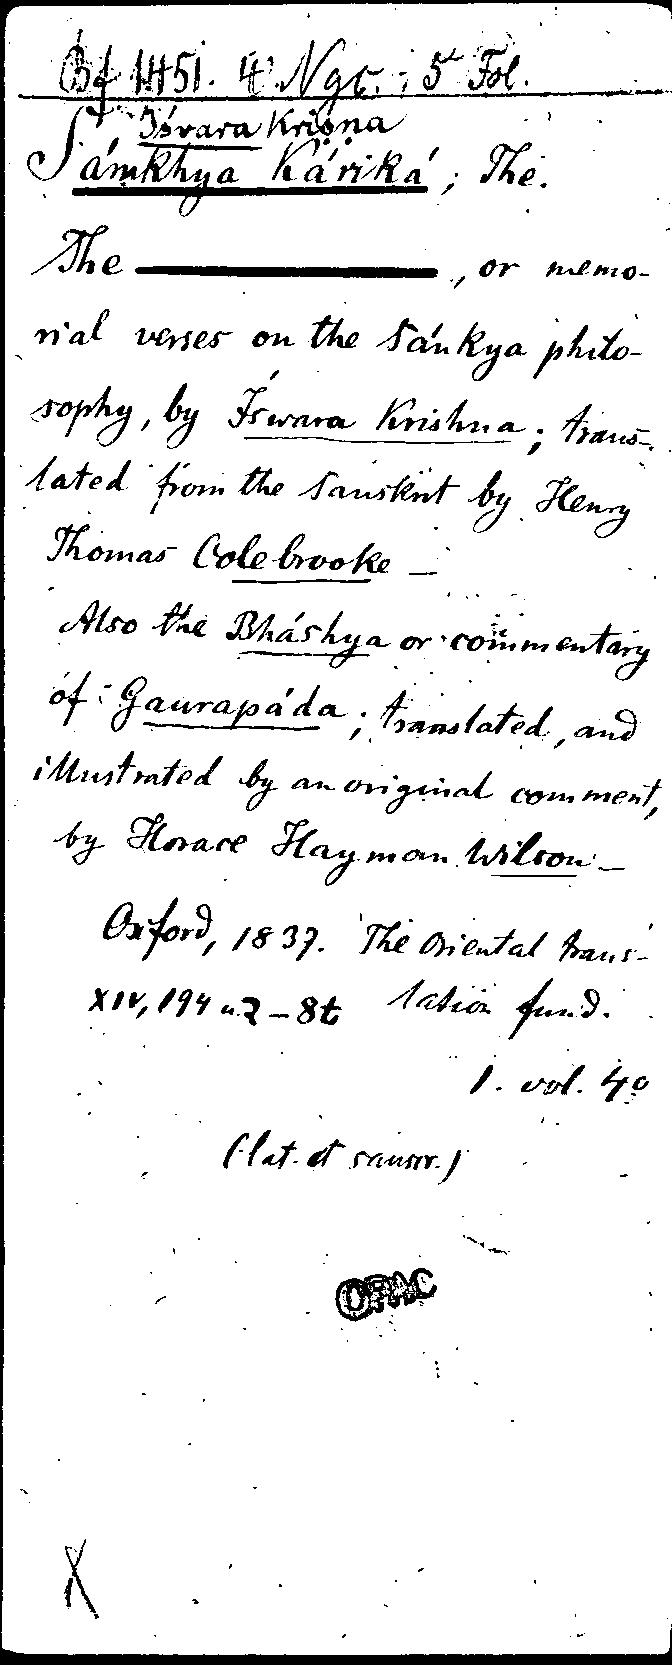 Bf 1451. 4º. Ngc.; 5 Fol.
Íśvara Kriṣṇa
Sáṁkhya Káriká; The.
The ————, or memo-
rial verses on the Sánkya philo-
sophy, by Íswara Krishna; trans-
lated from the Sanskrit by Henry
Thomas Colebrooke —
Also the Bháshya or commentary
of Gaurapáda; translated, and
illustrated by an original comment,
by Horace Hayman Wilson —
Oxford, 1837. The Oriental trans-
XIV, 194 u. lation fund.
1. vol. 4º
(lat. et sanscr.)
OPAC
X